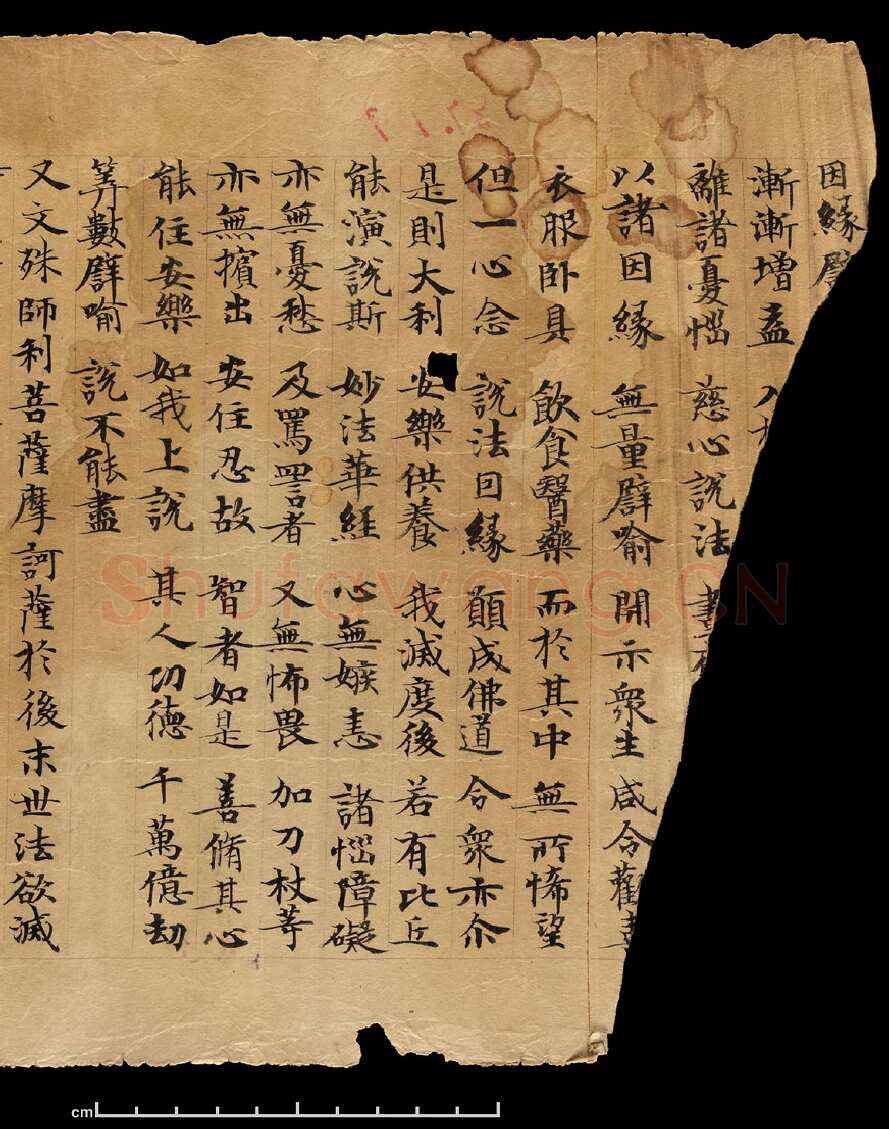 因緣譬
漸漸增益 入
離諸憂惱 慈心說法 晝
以諸因緣 無量譬喻 開示衆生 咸令歡喜
衣服卧具 飲食醫藥 而於其中 無所悕望
但一心念 說法因緣 願成佛道 令衆亦尒
是則大利 安樂供養 我滅度後 若有比丘
能演說斯 妙法華經 心無嫉恚 諸惱障礙
亦無憂愁 及罵詈者 又無怖畏 加刀杖等
亦無擯出 安住忍故 智者如是 善脩其心
能住安樂 如我上說 其人功德 千萬億劫
筭數譬喻 說不能盡
又文殊師利菩薩摩訶薩於後末世法欲滅
Shufawang.CN
cm